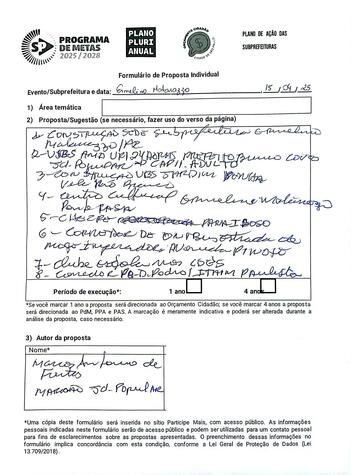 PROGRAMA
DE METAS
2025/2028
PLANO
PLURI
ANUAL
PLANO DE AÇÃO DAS
SUBPREFEITURAS
Formulário de Proposta Individual
Evento/Subprefeitura e data: Ermelino Matarazzo, 15/04/25
1) Área temática
2) Proposta/Sugestão (se necessário, fazer uso do verso da página)
1- CONSTRUÇÃO SEDE Subprefeitura Ermelino
Matarazzo/
2- UBS AMA UPA 24 HORAS PREFEITO
Jd. Popular CAPS ADULTO
3- CONSTRUÇÃO UBS JARDIM
4- Centro Cultural Ermelino Matarazzo
5- PARA IDOSO
6- CORREDOR DE ONIBUS Estrada de
Mogi Avenida
7- Clube Escola nos CDCS
8- Corredor D. Pedro / ITAIM Paulista
Período de execução*: 1 ano 4 anos
*Se você marcar 1 ano a proposta será direcionada ao Orçamento Cidadão; se você marcar 4 anos a proposta
será direcionada ao PdM, PPA e PAS. A marcação é meramente indicativa e poderá ser alterada durante a
análise da proposta, caso necessário.
3) Autor da proposta
Nome*
Marcos Antonio de
Freitas
Jd. Popular
*Uma cópia deste formulário será inserida no sítio Participe Mais, com acesso público. As informações
pessoais indicadas neste formulário serão de acesso público e podem ser utilizadas para um contato pessoal
para fins de esclarecimentos sobre as propostas apresentadas. O preenchimento dessas informações no
formulário implica concordância com esta condição, conforme a Lei Geral de Proteção de Dados (Lei
13.709/2018).